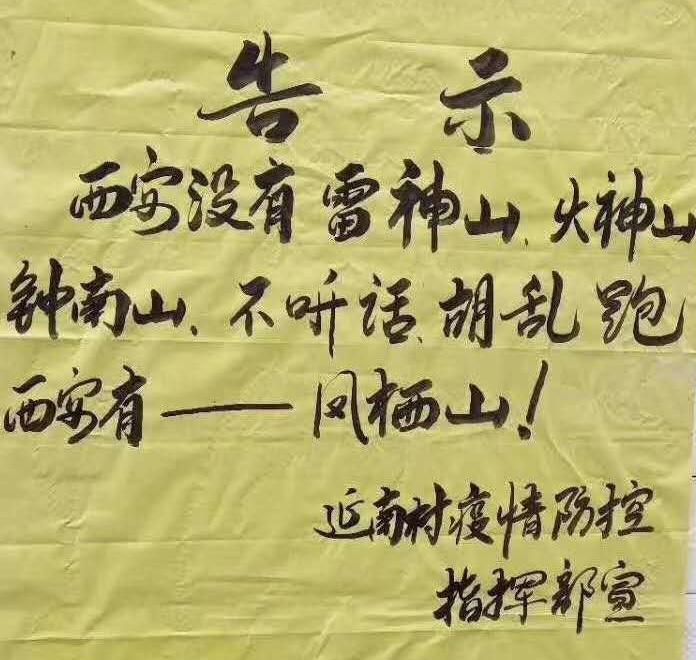 告示
西安没有雷神山、火神山
钟南山、不听话、胡乱跑
西安有——凤栖山!
延南村疫情防控
指挥部宣